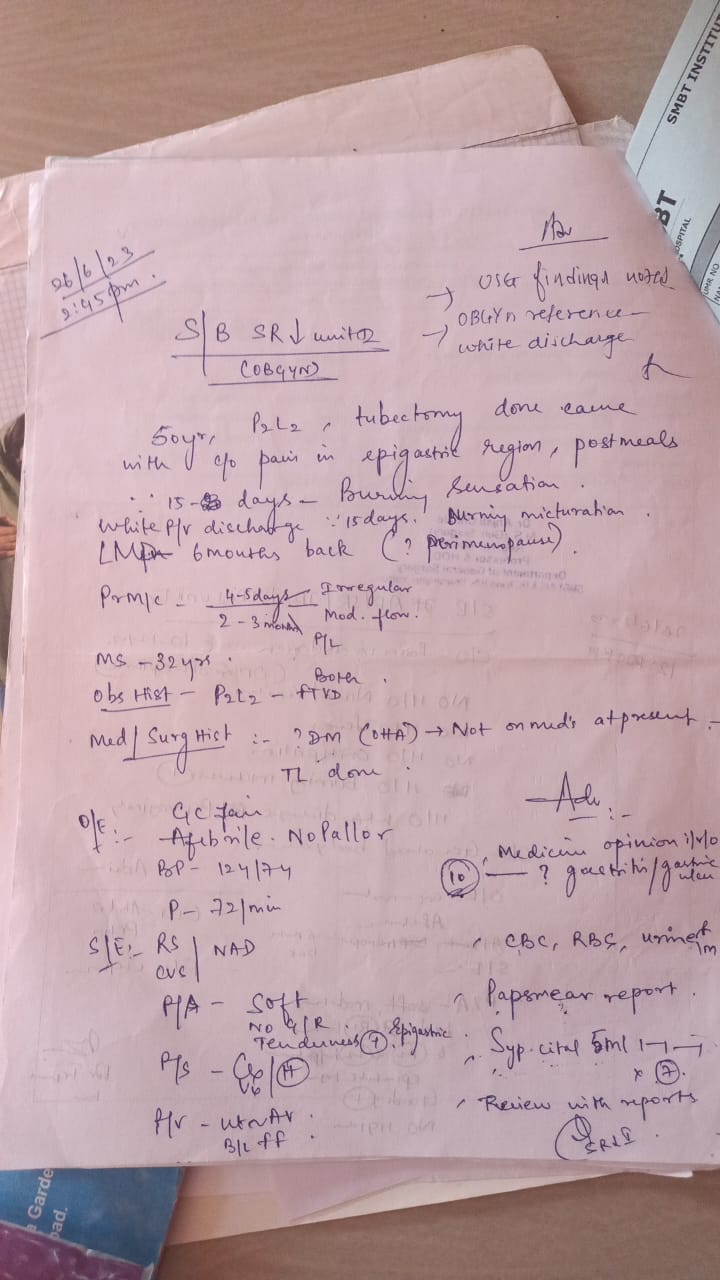 SMBT INSTITU
BT
OSPITAL
UMR NO
26/6/23
2:45pm.
→ USG findings noted
→ OBGYn reference
white discharge
S/B SR↓ unit 2
(OBGYN)
50yr, P2L2, tubectomy done came
with c/o pain in epigastric region, postmeals
∵ 15 days - Burning Sensation.
White P/v discharge ∵ 15 days. Burning micturation.
LMP 6 months back (? perimenopause).
PrM/c - 4-5days Irregular
2-3 months Mod. flow.
P/L
MS - 32yrs.
Obs Hist - P2L2 - Both FTVD
Med/Surg Hist :- ? DM (OHA) → Not on meds at present.
TL done.
O/E :- GC fair
Afebrile. No Pallor
BP - 124/74
P - 72/min
S/E :- RS
CVS NAD
P/A - Soft
No G/R.
Tenderness + Epigastric.
P/s - Cx/Vg H
P/v - ut AV
B/L ff
Adv :-
Medicine opinion i/v/o
10 — ? gastritis/gastric ulcer
CBC, RBS, urine R/m
Papsmear report.
Syp. cital 5ml 1-1-1
x 7.
Review with reports
a Garde
oad.